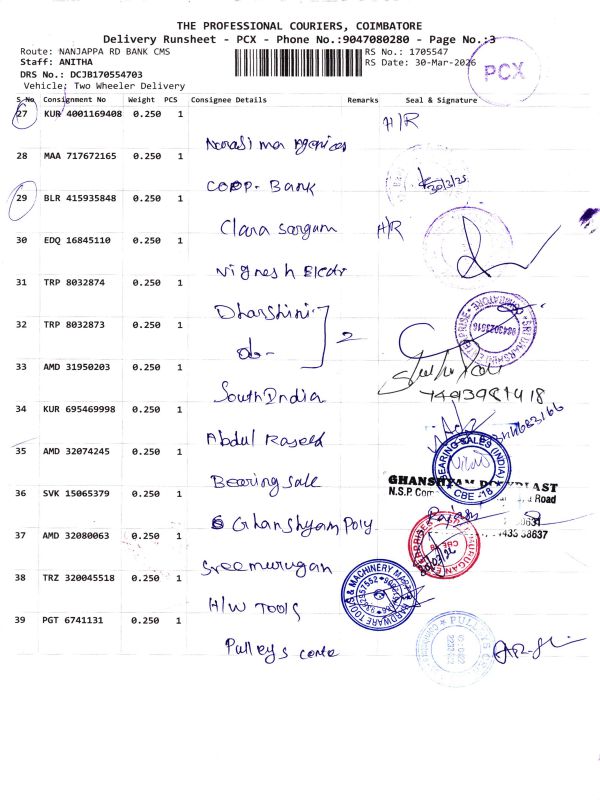 THE PROFESSIONAL COURIERS, COIMBATORE
Delivery Runsheet - PCX - Phone No.:9047080280 - Page No.:3
Route: NANJAPPA RD BANK CMS
RS No.: 1705547
Staff: ANITHA
RS Date: 30-Mar-2026
PCX
DRS No.: DCJB170554703
Vehicle: Two Wheeler Delivery
S.No Consignment No Weight PCS Consignee Details Remarks Seal & Signature
27 KUR 4001169408 0.250 1 H/R
28 MAA 717672165 0.250 1
COOP. Bank 30/3/25
29 BLR 415935848 0.250 1
Clara Sargam H/R
30 EDQ 16845110 0.250 1
Vignesh Elect
31 TRP 8032874 0.250 1
Dharshini
32 TRP 8032873 0.250 1
do - 2
9843023516
33 AMD 31950203 0.250 1
South India
34 KUR 695469998 0.250 1
Abdul Raseed
35 AMD 32074245 0.250 1
BEARING SALES (INDIA)
CBE -18
Bearing Sale
36 SVK 15065379 0.250 1
GHANSHYAM POLYPLAST
N.S.P. Road
Ghanshyam Poly
37 AMD 32080063 0.250 1
Sree murugan
38 TRZ 320045518 0.250 1
HARDWARE TOOLS & MACHINERY MART
H/W TOOLS
39 PGT 6741131 0.250 1
Pulleys cente